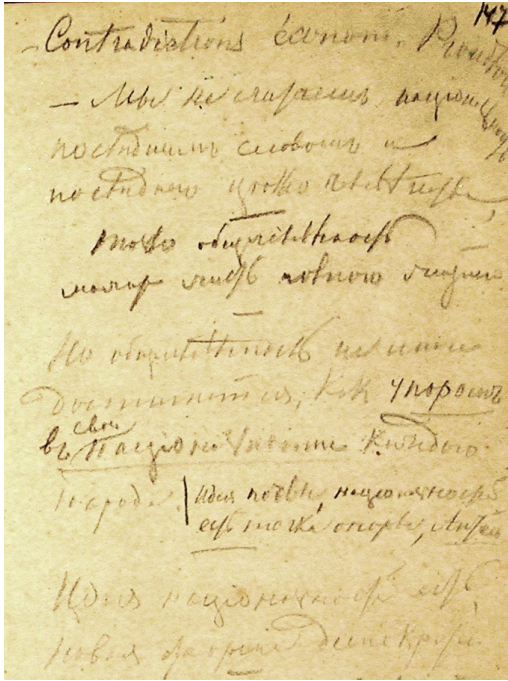 147
— Contradictions économ. Proudhon
— Мы не считаемъ націонал[ьность]
последнимъ словомъ и
последнею целью человечества,
Только общечеловечность
можетъ жить полною жизнью.
—
Но общечеловечность не иначе
достигнется, какъ упоромъ
въ свои національности каждаго
народа. Идея почвы, національностей
есть точка опоры, Антей
Идея національностей есть
новая форма демократіи.